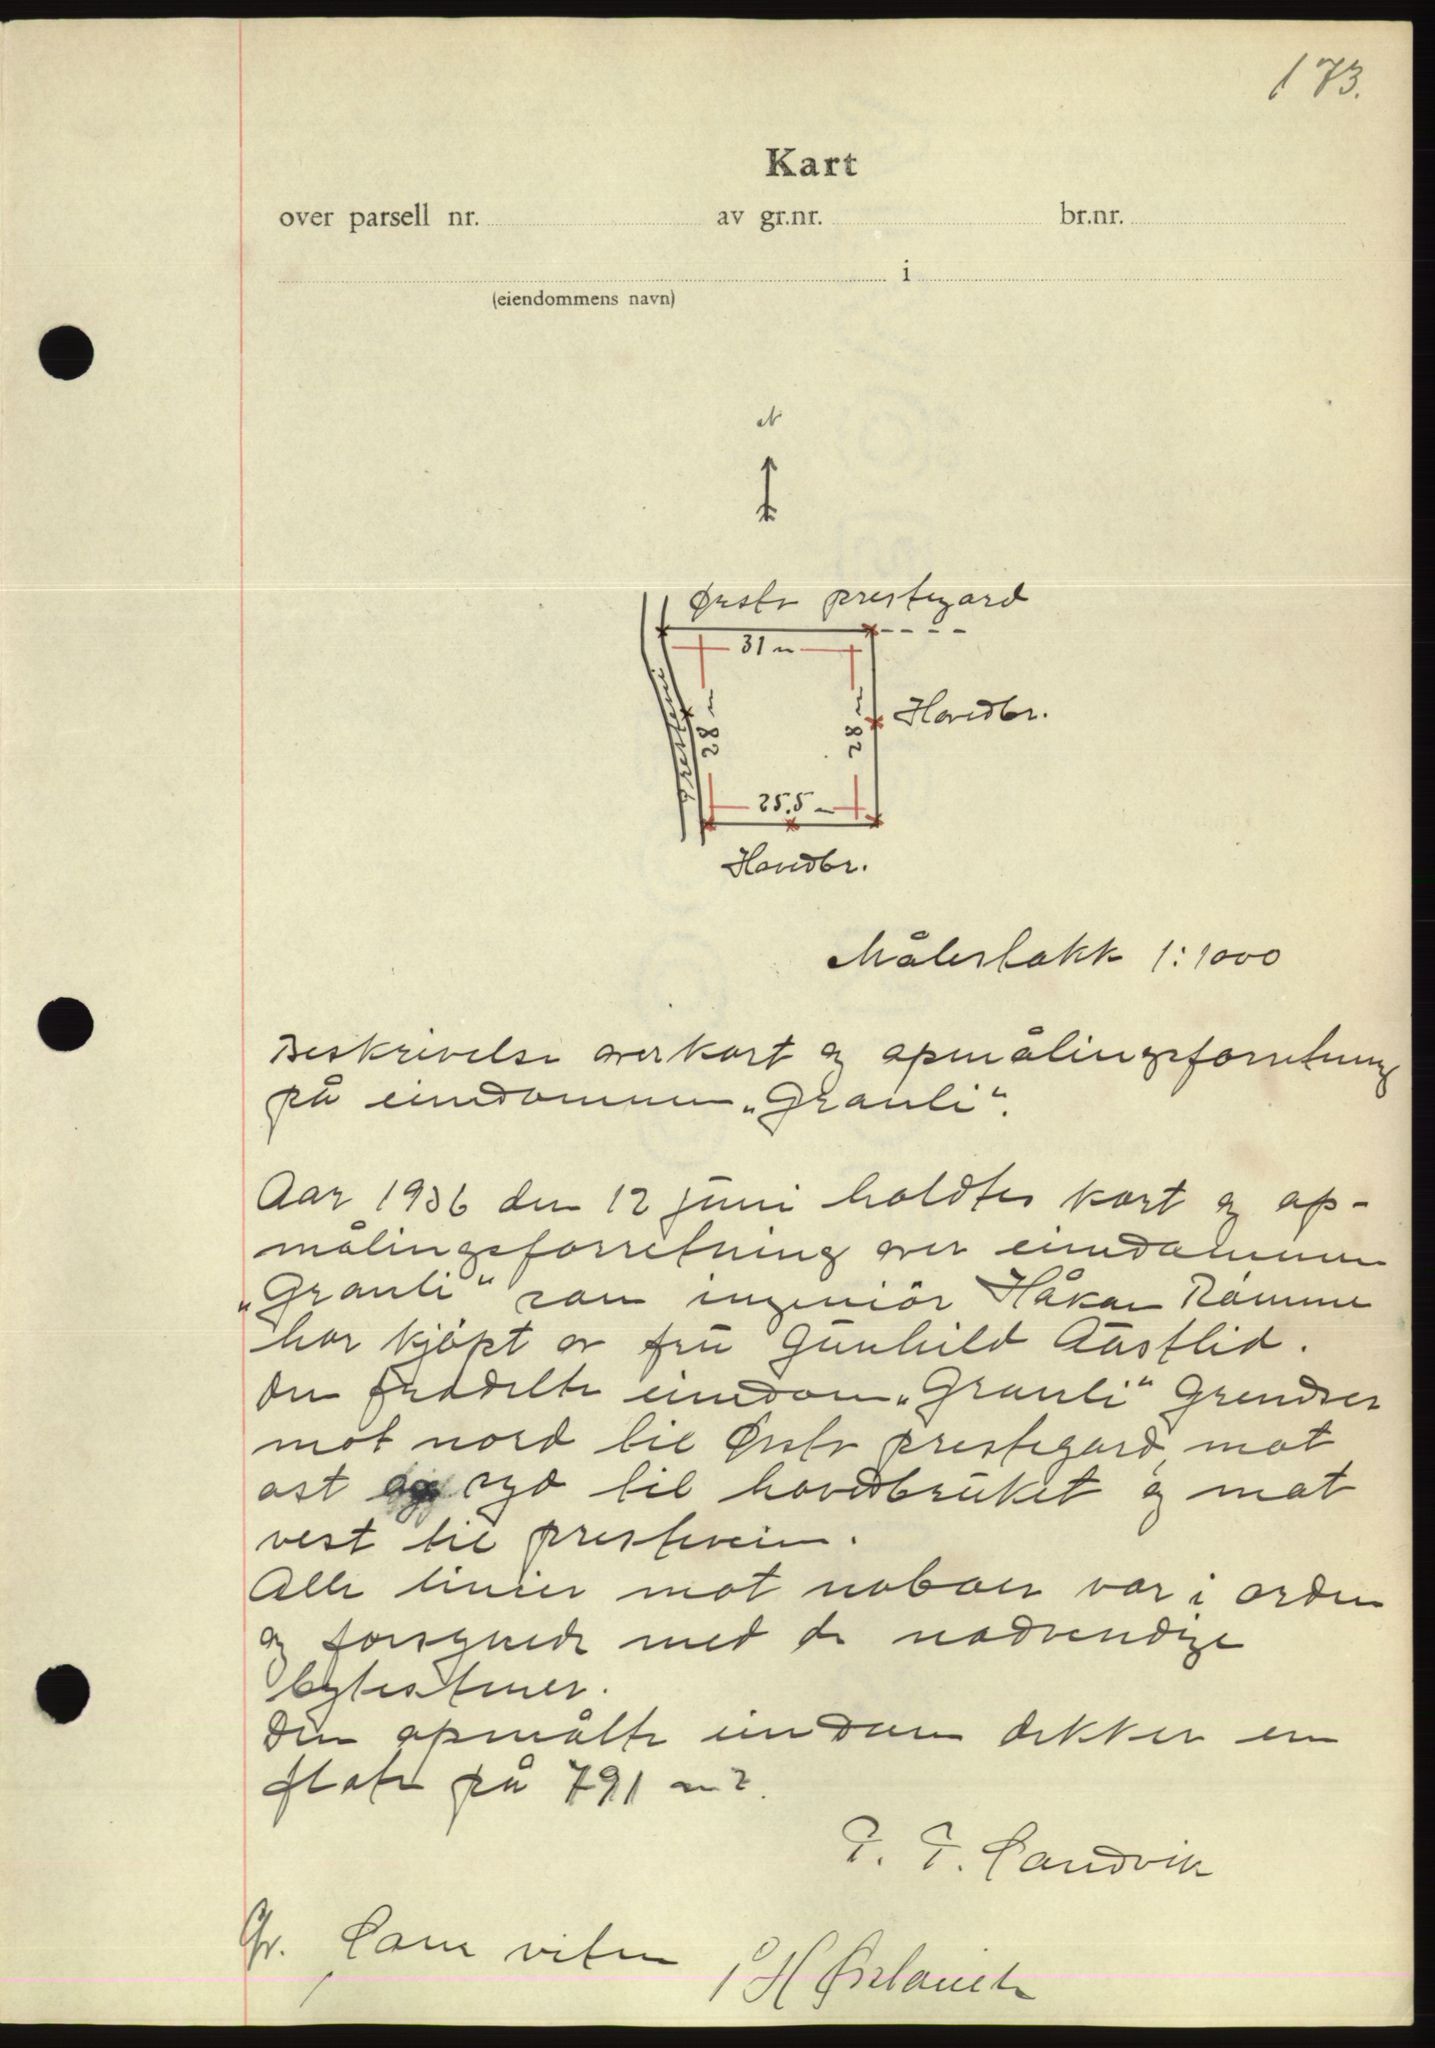 173.
Kart
over parsell nr. av gr.nr. br.nr.
i
(eiendommens navn)
N
Ørsta prestegard
31 m
Prestevei
28 m
28 m
Hovedbr.
25.5 m
Hovedbr.
Målestokk 1:1000
Beskrivelse over kart og opmålingsforretning
på eiendommen „Granli“.
Aar 1936 den 12 juni holdtes kart og op-
målingsforretning over eiendommen
„Granli“ som ingeniör Håkon Römme
har kjöpt av fru Gunhild Aastlid.
Den fradelte eiendom „Granli“ Grendser
mot nord til Ørsta prestegard, mot
ost og syd til hovedbruket og mot
vest til presteveien.
Alle linier mot naboer var i orden
og forsynede med de nodvendige
bytestener.
Den opmålte eiendom dekker en
flate på 791 m2.
T. T. Sandvik
Gr.
Som vitne